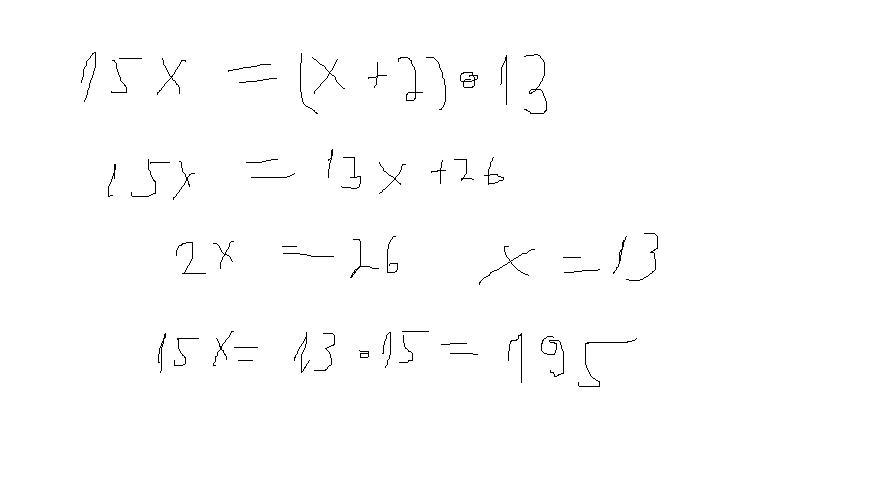 15x = (x + 2) • 13
15x = 13x + 26
2x = 26 x = 13
15x = 13 • 15 = 195